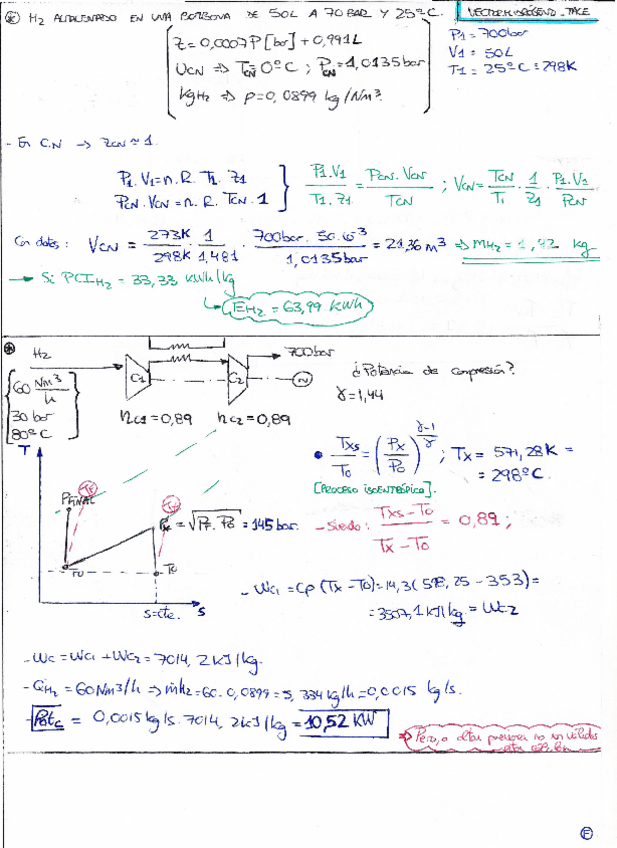 * H2 ALMACENADO EN UNA BOTELLONA DE 50L A 70 BAR Y 25ºC.
VECTOR HIDRÓGENO - TAKE
Z = 0,0007 P [bar] + 0,991L
VCN => TCN 0ºC ; PCN = 1,0135 bar
kg H2 => ρ = 0,0899 kg/Nm³
P1 = 700 bar
V1 = 50L
T1 = 25ºC = 298K
- En C.N -> ZCN ≈ 1.
P1.V1 = n.R.T1.Z1
PCN.VCN = n.R.TCN.1
P1.V1 / T1.Z1 = PCN.VCN / TCN ; VCN = TCN/T1 . 1/Z1 . P1.V1/PCN
Con datos: VCN = 273K/298K . 1/1,481 . 700bar.50.10^-3/1,0135bar = 21,36 m³ => MH2 = 1,92 kg
-> Si PCI H2 = 33,33 kWh/kg
EH2 = 63,99 kWh
* H2
700bar
60 Nm³/h
30 bar
80ºC
C1
C2
¿Potencia de compresión?
γ = 1,44
ηC1 = 0,89 ηC2 = 0,89
• TXS/T0 = (PX/P0)^(γ-1/γ) ; TX = 571,28K =
= 298ºC.
[PROCESO ISOENTRÓPICO].
T
PFINAL
PX = √PF.P0 = 145 bar.
- Siendo: TXS-T0 / TX-T0 = 0,89 ;
T0
T0
S=cte.
S
- WC1 = Cp (TX - T0) = 14,3 (598,25 - 353) =
= 3507,1 kJ/kg = WC2
- WC = WC1 + WC2 = 7014,2 kJ/kg.
- QH2 = 60 Nm³/h => ṁH2 = 60. 0,0899 = 5,334 kg/h = 0,0015 kg/s.
- PotC = 0,0015 kg/s. 7014,2 kJ/kg = 10,52 KW
=> Pero, a altas presiones no son válidas
E